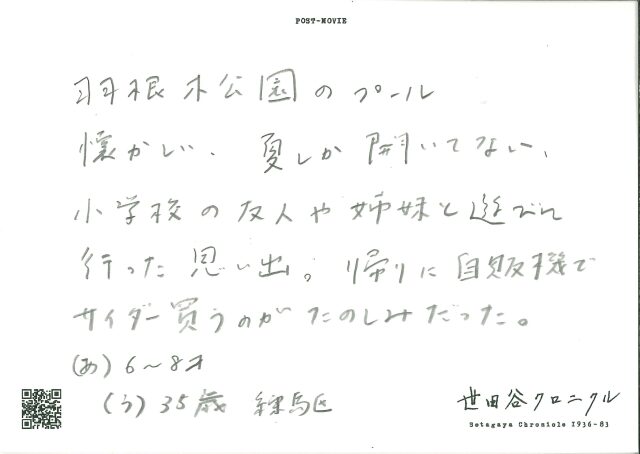 POST-MOVIE
羽根木公園のプール
懐かしい、夏しか開いてない、
小学校の友人や姉妹と遊びに
行った思い出。帰りに自販機で
サイダー買うのがたのしみだった。
(あ) 6〜8才
(う) 35歳 練馬区
世田谷クロニクル
Setagaya Chronicle 1936-83